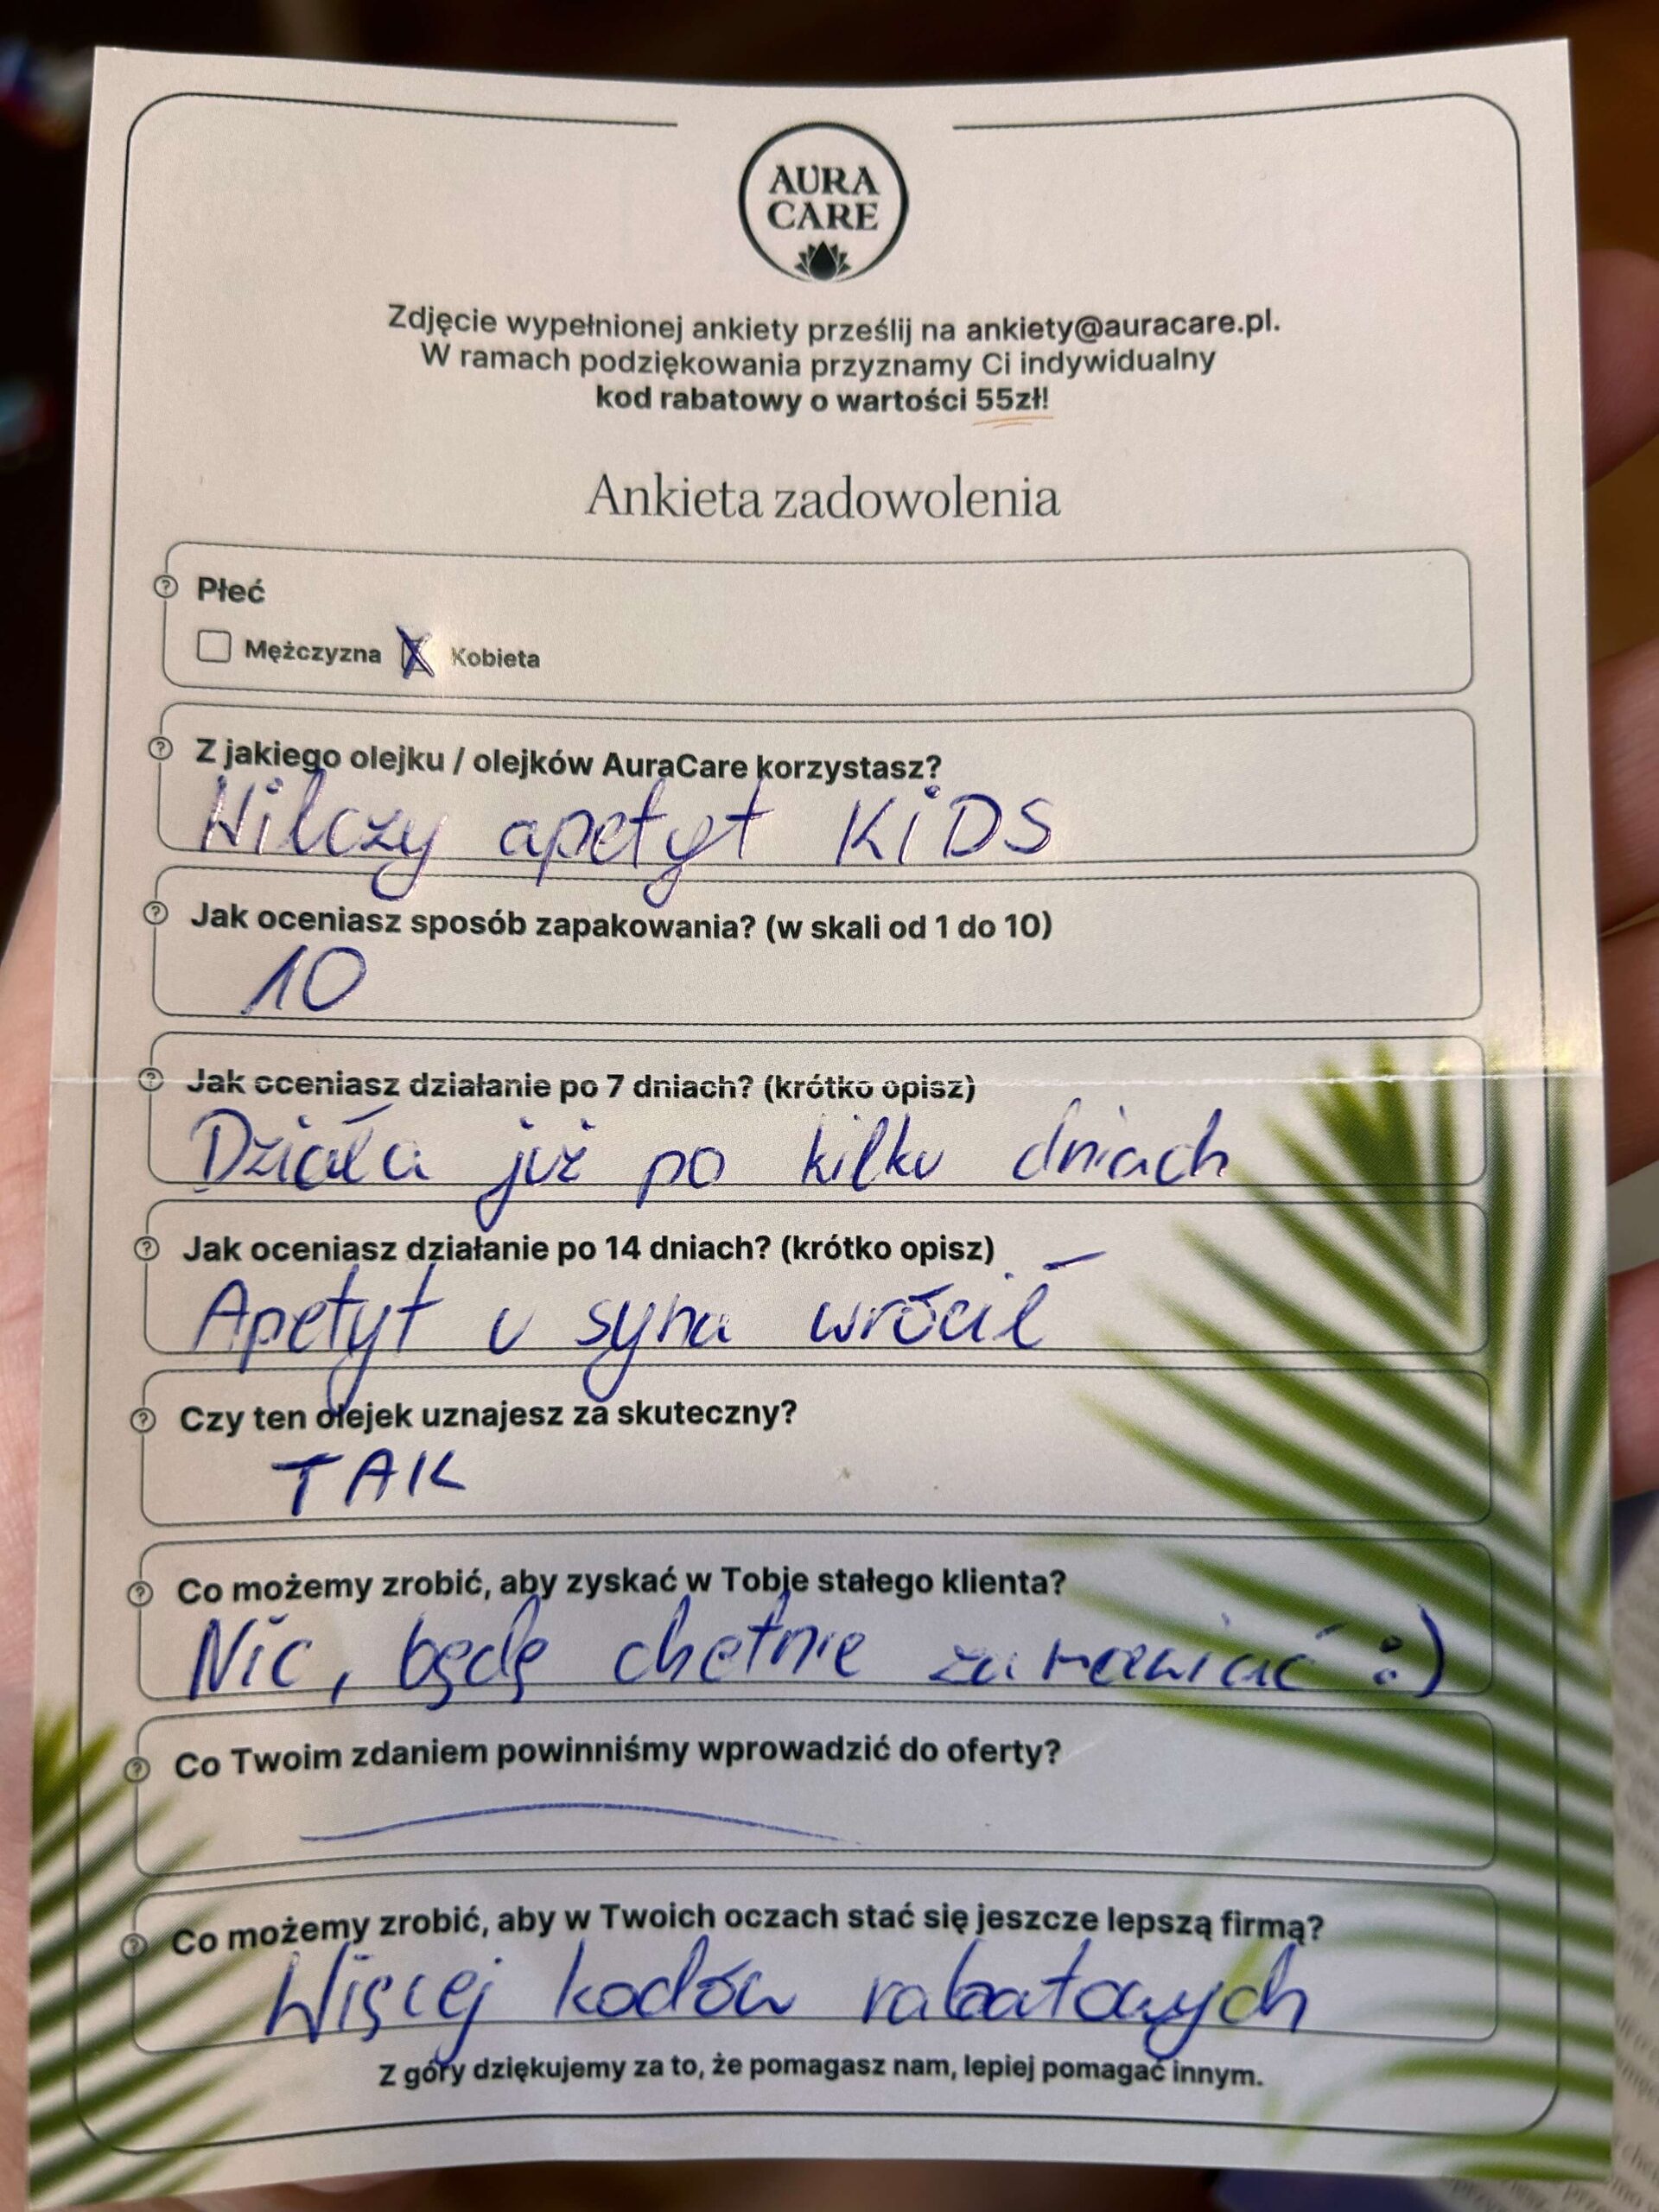 AURA
CARE
Zdjęcie wypełnionej ankiety prześlij na ankiety@auracare.pl.
W ramach podziękowania przyznamy Ci indywidualny
kod rabatowy o wartości 55zł!
Ankieta zadowolenia
Płeć
Mężczyzna X Kobieta
Z jakiego olejku / olejków AuraCare korzystasz?
Wilczy apetyt KiDS
Jak oceniasz sposób zapakowania? (w skali od 1 do 10)
10
Jak oceniasz działanie po 7 dniach? (krótko opisz)
Działa już po kilku dniach
Jak oceniasz działanie po 14 dniach? (krótko opisz)
Apetyt u syna wrócił
Czy ten olejek uznajesz za skuteczny?
TAK
Co możemy zrobić, aby zyskać w Tobie stałego klienta?
Nic, będę chętnie zamawiać :)
Co Twoim zdaniem powinniśmy wprowadzić do oferty?
Co możemy zrobić, aby w Twoich oczach stać się jeszcze lepszą firmą?
Więcej kodów rabatowych
Z góry dziękujemy za to, że pomagasz nam, lepiej pomagać innym.